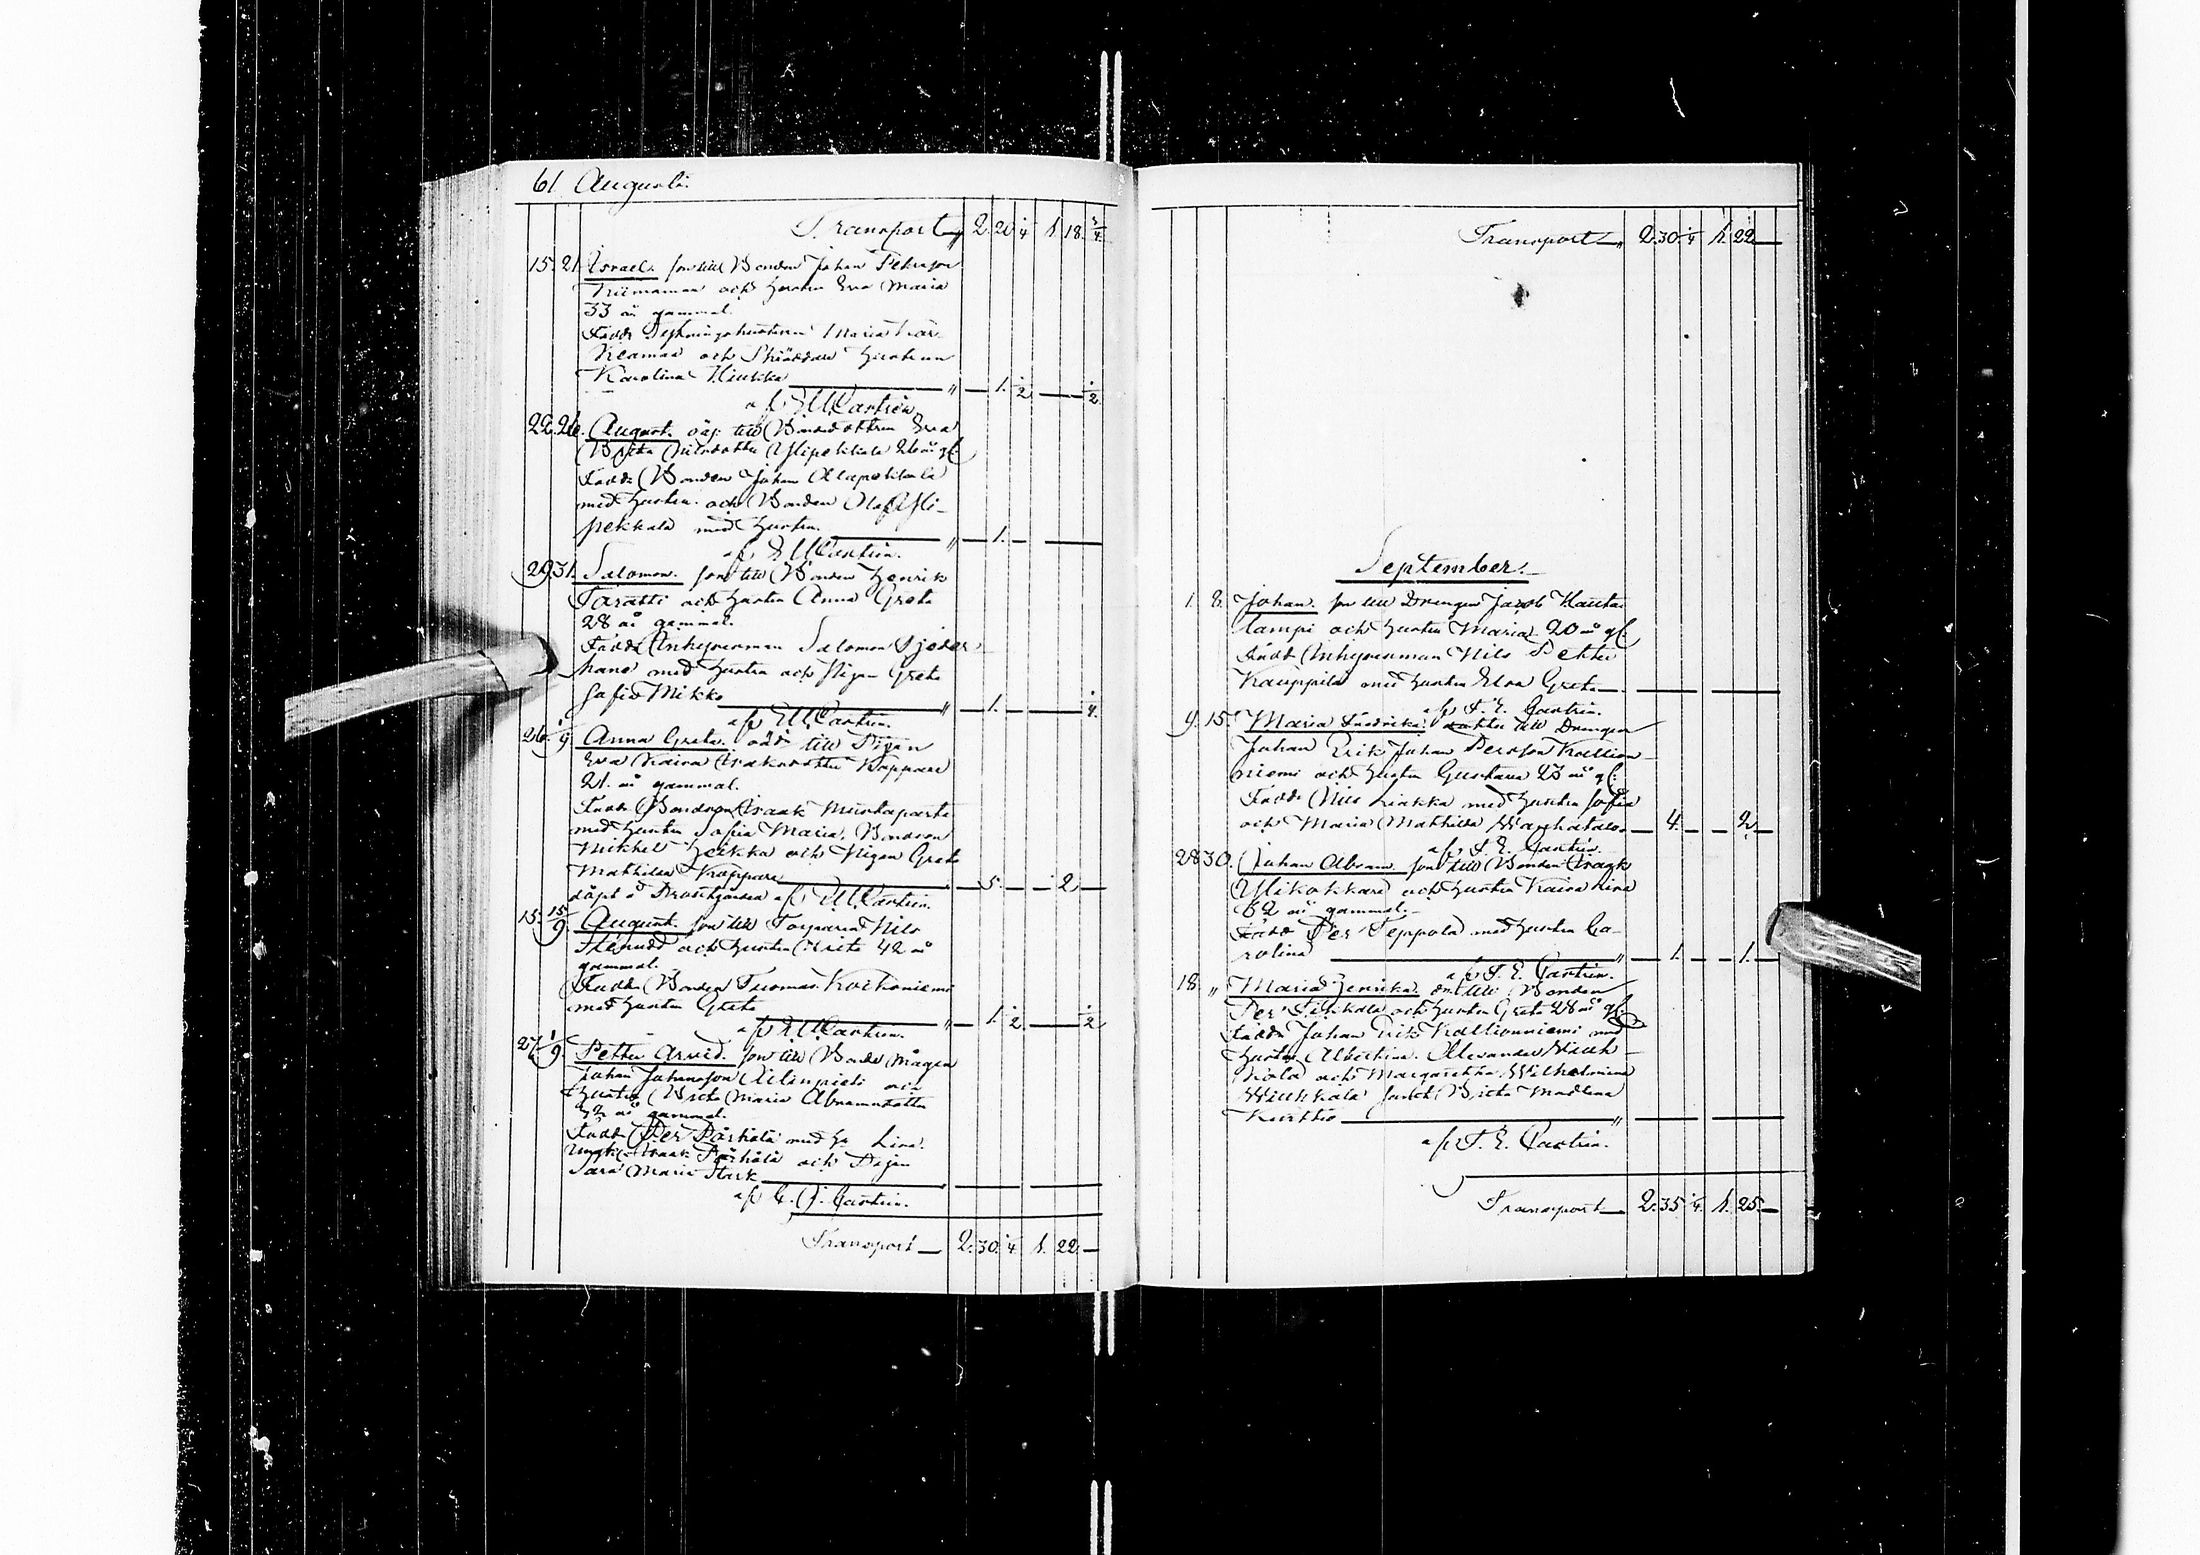 61 Augusti.
Transport 2. 20 1/4 1. 18. 3/4
15. 21. Israel. son till Bonden Johan Pehrson
Niimamaa och hustru Eva Maria
33 år gammal.
Fadd.
och Skräddare hustrun
Karolina 1. 1/2 1/2
af E U Castrén.
22. 26. August. oäg: till Bondedottren Eva
Brita Nilsdotter Ylipekkala 26 år gl:
Fadd: Bonden Johan Alapekkala
med hustru och Bonden Olof Yli-
pekkala med hustru. 1.
af E U Castrén.
29. 31. Salomon. son till Bonden Henrik
Taratti och hustru Anna Greta
28 år gammal.
Fadd: Inhysesman Salomon
med hustru och Pigan Greta
Sofia Mikko 1. 1/4.
af E U Castrén.
26. 1/9. Anna Greta. oäd till Pigan
Eva Kaisa Isaksdotter Kappare
21. år gammal.
Fadd: Bondson Isaak Mustaparta
med hustru Sofia Maria, Bondson
Mikkel Heikka och Pigan Greta
Mathilda Kappare 5. 2
döpt å Prostgården af E U Castrén.
15. 15/9 August. son till Torparen Nils
Stenudd och hustru Brita 42 år
gammal.
Fadd: Bonden Thomas Korkoniemi
med hustru Greta 1. 1/2 1/2
af E U Castrén.
27. 1/9. Petter Arvid. son till Bonde mågen
Johan Johansson och
hustru Brita Maria Abramsdotter
32 år gammal.
Fadd: Per Pärkälä med h. Lisa.
Isaak Pärkälä och Pigan
Sara Maria Stark
af C. J. Castrén.
Transport 2. 30. 1/4 1. 22.
Transport 2. 30. 1/4 1. 22
September.
1. 8. Johan. son till Drengen Jacob Kauta-
lampi och hustru Maria 20 år gl:
Fadd: Inhysesman Nils Petter
Kauppila med hustru Elsa Greta
af F. E. Castrén.
9. 15. Maria Fredrika. dotter till Drengen
Johan Erik Johan Persson Kallion-
niemi och hustru Gustava 23 år gl:
Fadd: Nils Liakka med hustru Sofia
och Maria Mathilda 4. 2.
af F. E. Castrén.
28 30. Johan Abram. son till Bonden Isaak
Ylikokkare och hustru Kaisa Lisa
32 år gammal.
Fadd: Per Seppola med hustru Ca-
rolina 1. 1.
af F. E. Castrén.
18. " Maria Henrika. dot: till Bonden
Per och hustru Greta 28 år gl:
Fadd: Johan Erik Kallionniemi med
hustru Albertina. Alexander Niuk-
kala och Margaretha Wilhelmina
Niukkala samt Brita Madlena
Kurttio
af F. E. Castrén.
Transport 2. 35. 1/4. 1. 25.